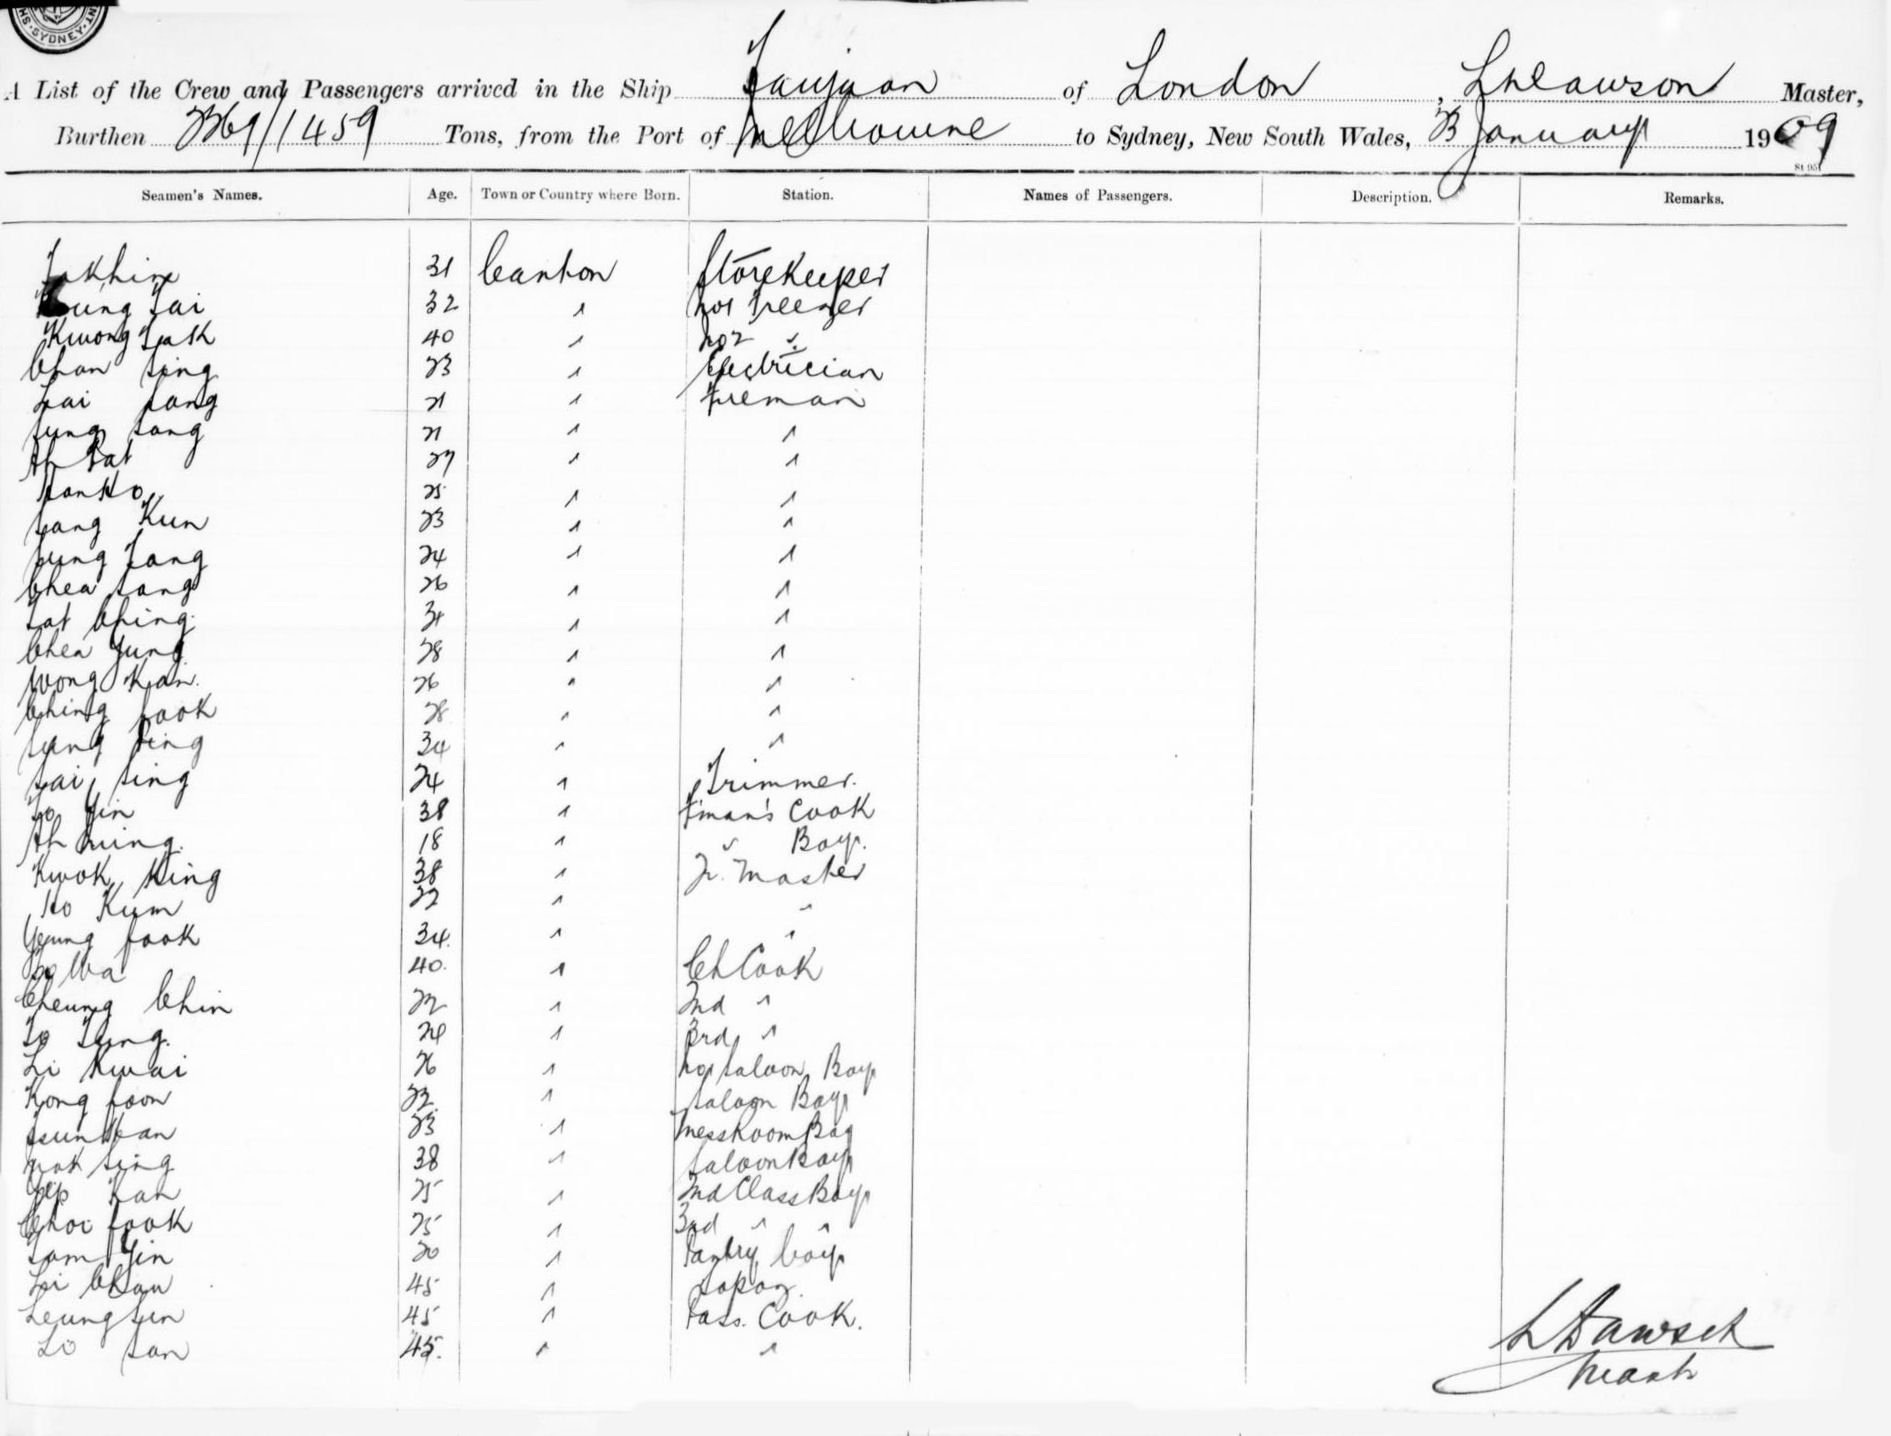 SYDNEY
A List of the Crew and Passengers arrived in the Ship Taiyuan of London, Master,
Burthen 2269/1459 Tons, from the Port of Melbourne to Sydney, New South Wales, 23 January 1909
St 951
Seamen's Names. Age. Town or Country where Born. Station. Names of Passengers. Description. Remarks.
31 Canton Storekeeper
32 " No1 Greaser
Kwong Tak 40 " No2 "
Chan Sing 23 " Electrician
Lai Sang 21 " Fireman
Sung Sang 21 " "
Ah Sat 27 " "
25 " "
Sang Kun 23 " "
24 " "
Chea Sang 26 " "
Sat Ching 31 " "
Chea Yung 28 " "
Wong Kan 26 " "
Ching Fook 28 " "
34 " "
Sai Sing 24 " Trimmer.
38 " F'man's Cook
Ah 18 " " Boy.
Kwok King 38 " Qr. Master
Ho Kum 22 " "
Yeung Fook 34 " "
40 " Ch Cook
Cheung Chin 22 " 2nd "
24 " 3rd "
Li Kwai 26 " No1 Saloon Boy
Kong Foon 22 " Saloon Boy
23 " Messroom Boy
Mok Sing 38 " Saloon Boy
Yip Kan 25 " 2nd Class Boy
Choi Fook 25 " 3rd " "
Sam Yin 20 " Pantry boy
Li Chau 45 "
Leung Sun 45 " Pass. Cook.
Lo San 45. " "